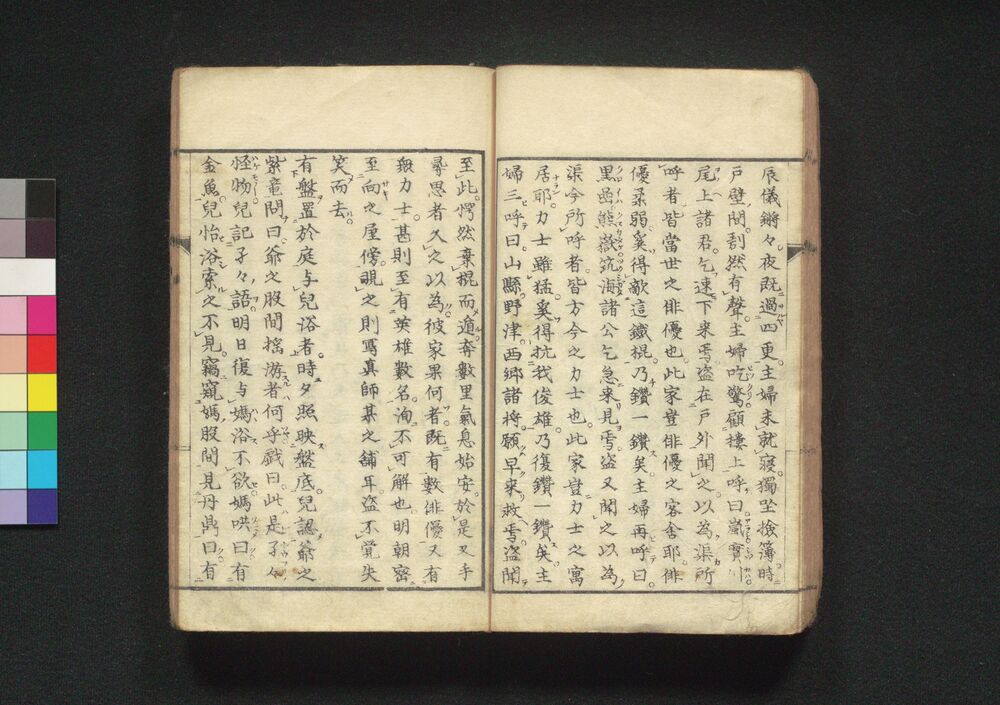 辰儀鏘々。夜既過四更。主婦未就寢。獨坐撿簿。時
戸壁間。割然有聲。主婦吃驚。顧樓上呼曰。嵐寶川
尾上諸君。乞速下来焉。盗在戸外聞之以為。渠所
呼者皆當世之俳優也。此家豈俳優之客舎耶。俳
優柔弱。奚得敵這鐵棍。乃鑽一鑽矣。主婦再呼曰。
黒岩熊嶽筑海諸公。乞急来見焉。盗又聞之以為。
渠今所呼者。皆方今之力士也。此家豈力士之寓
居耶。力士雖猛。奚得抗我俊雄。乃復鑽一鑽矣。主
婦三呼曰。山縣野津西郷諸將。願早来救焉。盗聞
至此。愕然棄棍而遁。奔數里氣息始安。於是叉手
尋思者久之。以為彼家果何者。既有數俳優。又有
數力士。甚則至有英雄數名。洵不可解也。明朝密
至向之屋傍。覗之則寫真師某之舗耳。盗不覺失
笑而去。
有盤置於庭。与兒浴者。時夕照映盤底。兒認爺之
紫竜。問曰。爺之股間搖游者何乎。戯曰。此是孑々
怪物。兒記孑々語。明日復与媽浴。不欲。媽哄曰。有
金魚。兒怡浴。索之不見。竊窺媽股間。見丹鼎曰。有